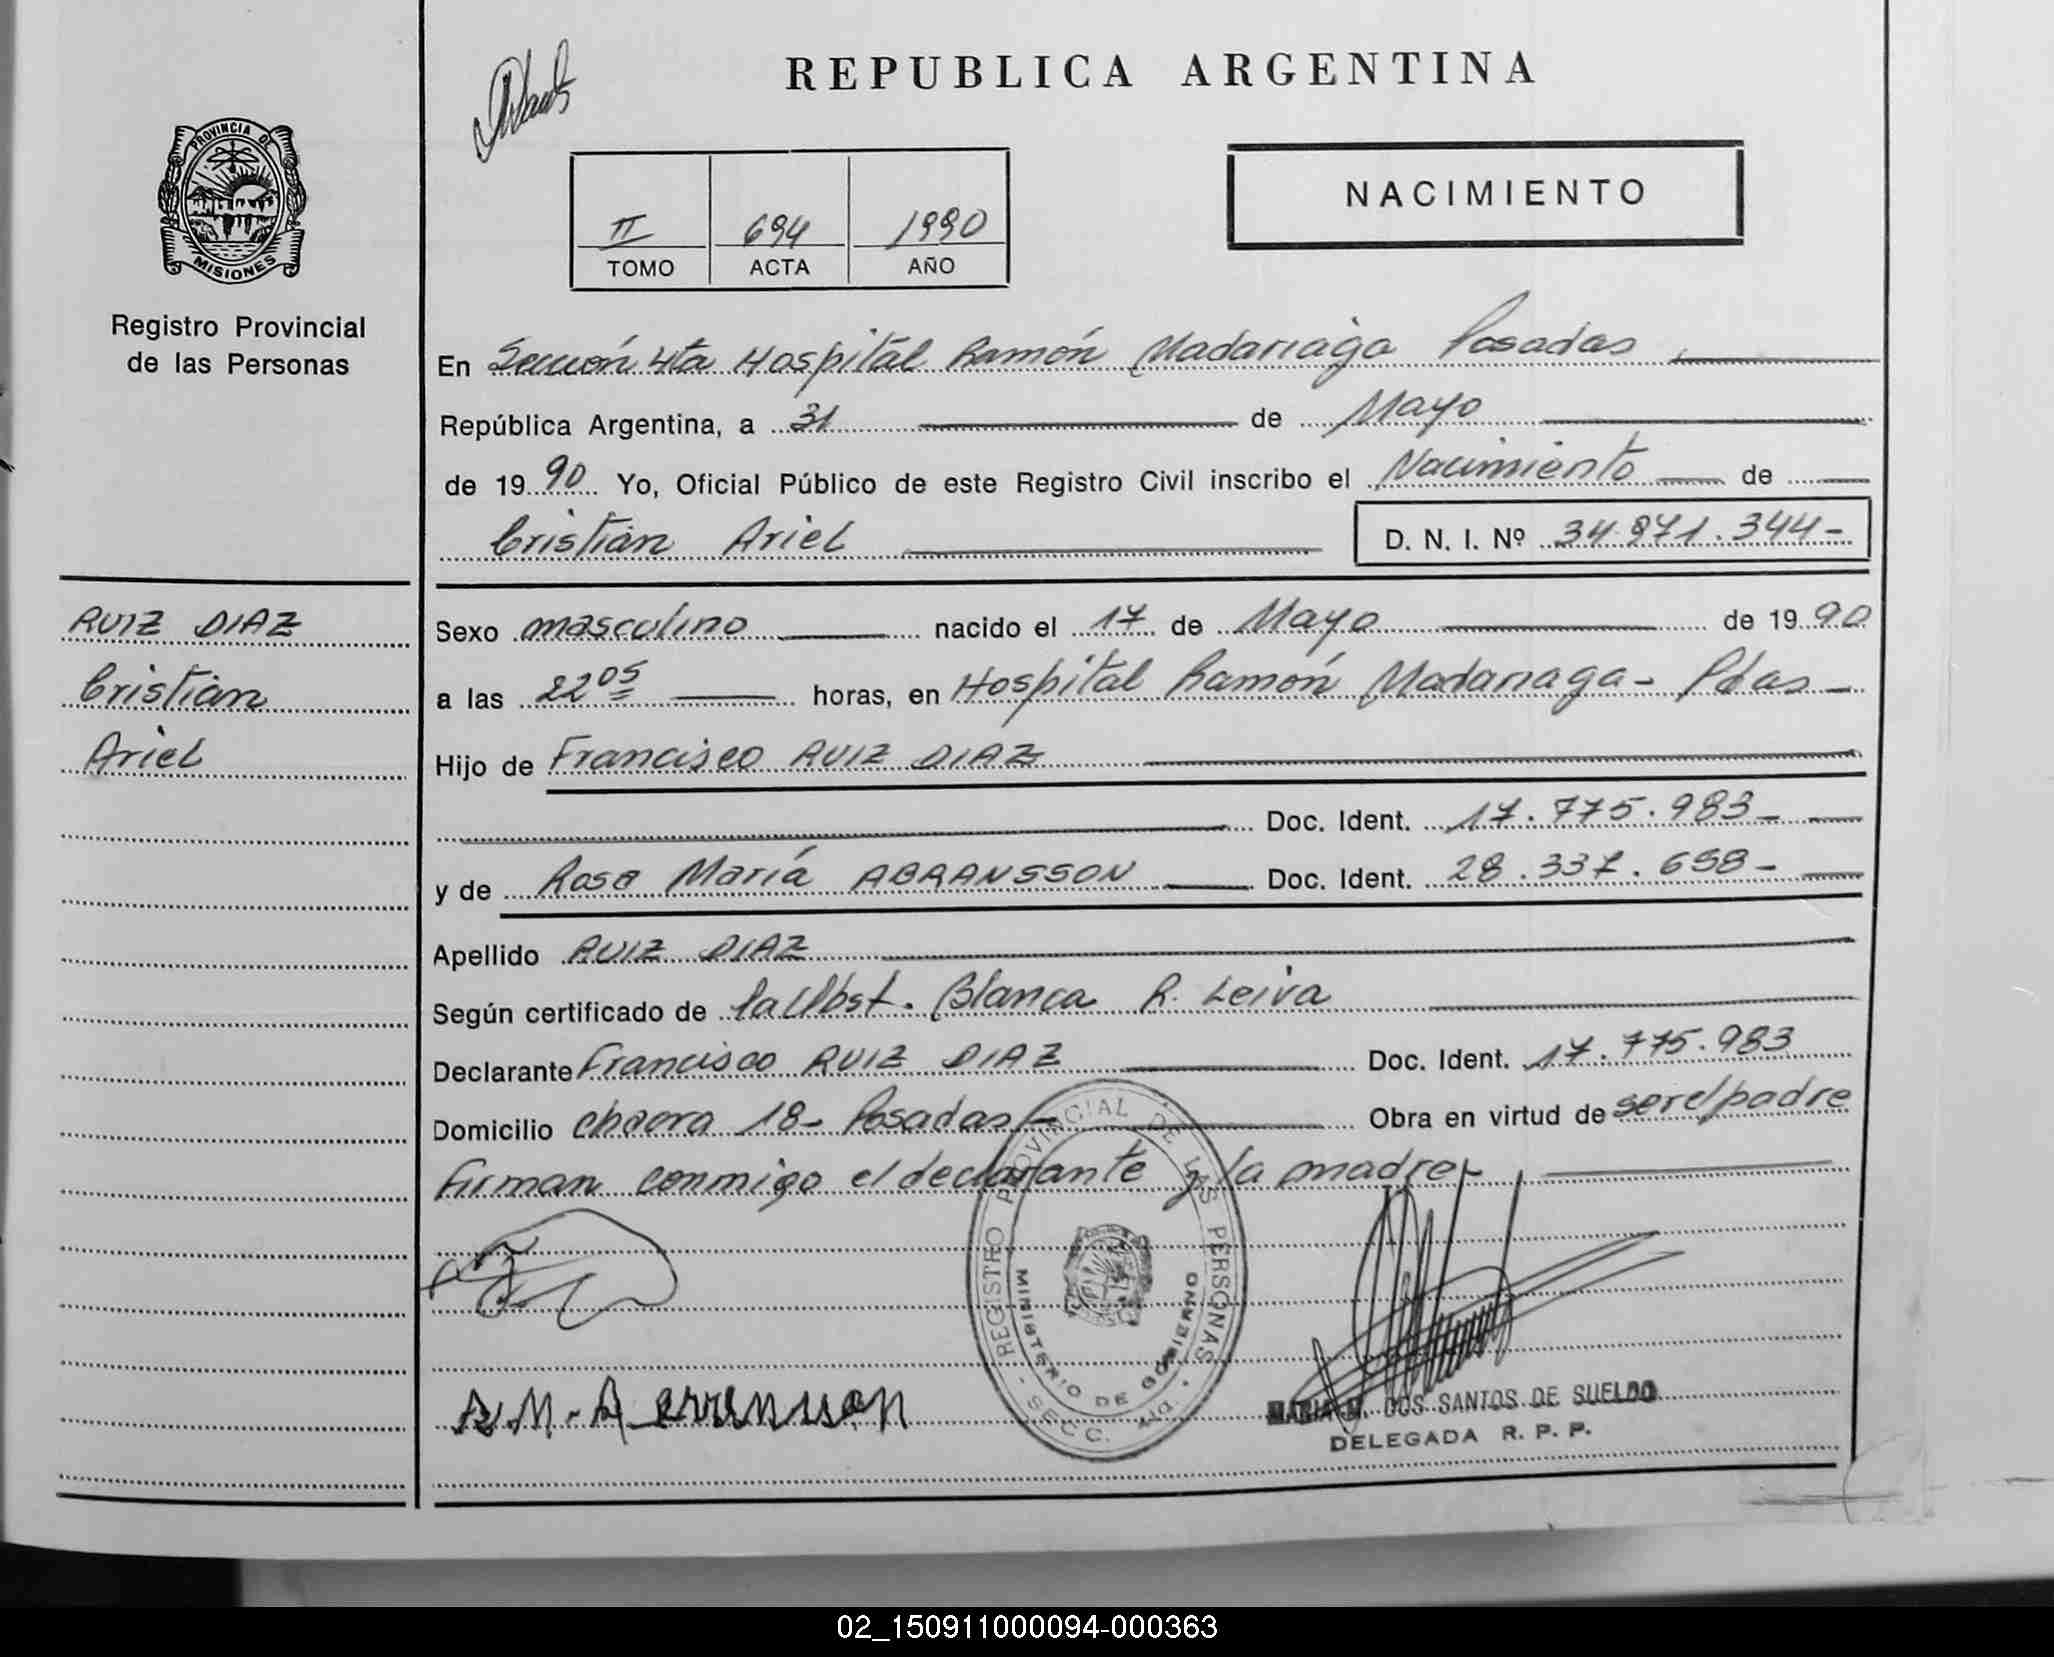 REPUBLICA ARGENTINA
PROVINCIA DE
MISIONES
Registro Provincial
de las Personas
II 694 1990
TOMO ACTA AÑO
NACIMIENTO
En Sección 4ta Hospital Ramón Madariaga Posadas
República Argentina, a 31 de Mayo
de 1990 Yo, Oficial Público de este Registro Civil inscribo el Nacimiento de
Cristian Ariel D. N. I. Nº 34.971.344-
RUIZ DIAZ
Cristian
Ariel
Sexo masculino nacido el 17 de Mayo de 1990
a las 22 05 horas, en Hospital Ramón Madariaga - Pdas -
Hijo de Francisco RUIZ DIAZ
Doc. Ident. 17.775.983-
y de Rosa María ABRANSSON Doc. Ident. 28.337.658-
Apellido RUIZ DIAZ
Según certificado de la Obst. Blanca R. Leiva
Declarante Francisco RUIZ DIAZ Doc. Ident. 17.775.983
Domicilio chacra 18- Posadas- Obra en virtud de ser el padre
Firman conmigo el declarante y la madre-
REGISTRO PROVINCIAL DE LAS PERSONAS
MINISTERIO DE GOBIERNO
SECC. 4ta
MARIA M. DOS SANTOS DE SUELDO
DELEGADA R. P. P.
02_150911000094-000363